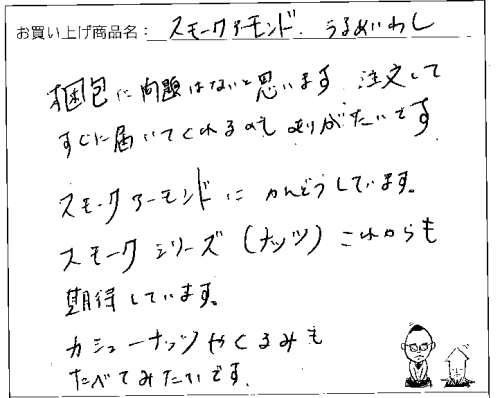 お買い上げ商品名：スモークアーモンド．うるめいわし
梱包に問題はないと思います 注文して
すぐに届いてくれるのも ありがたいです
スモークアーモンドに かんどうしています。
スモークシリーズ（ナッツ）これからも
期待しています。
カシューナッツやくるみも
たべてみたいです．